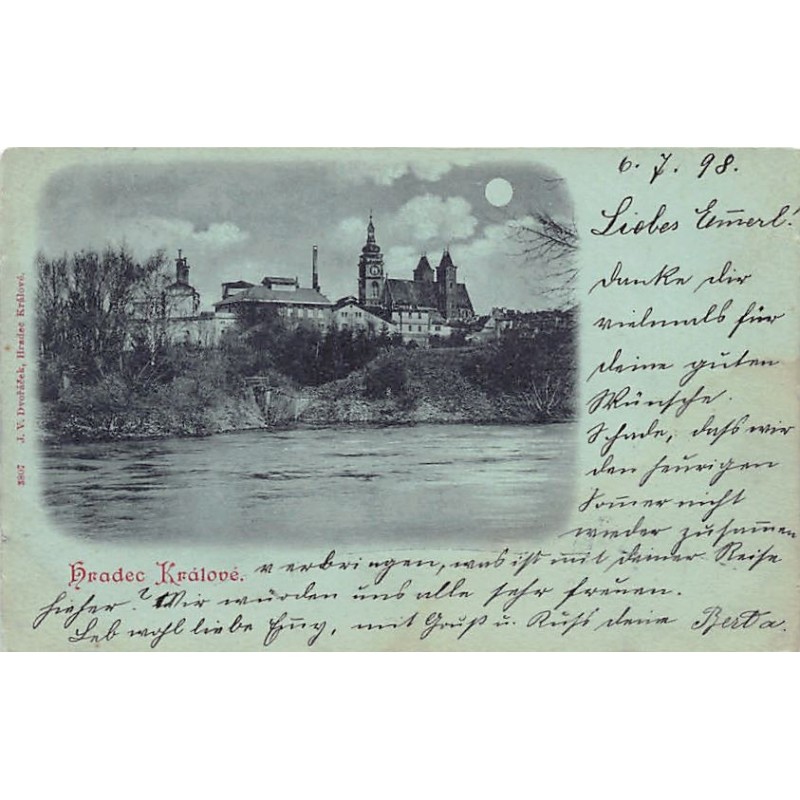 6. 7. 98.
Liebes Em̅erl!
danke dir
vielmals für
deine guten
Wünsche.
Schade, dass wir
den heurigen
Som̅er nicht
wieder zusam̅en
verbringen, was ist mit deiner Reise
hieher? Wir würden uns alle sehr freuen.
Leb wohl liebe Em̅y, mit Gruß u. Kuss deine Berta.
Hradec Králové.
3807 J. V. Dvořáček, Hradec Králové.